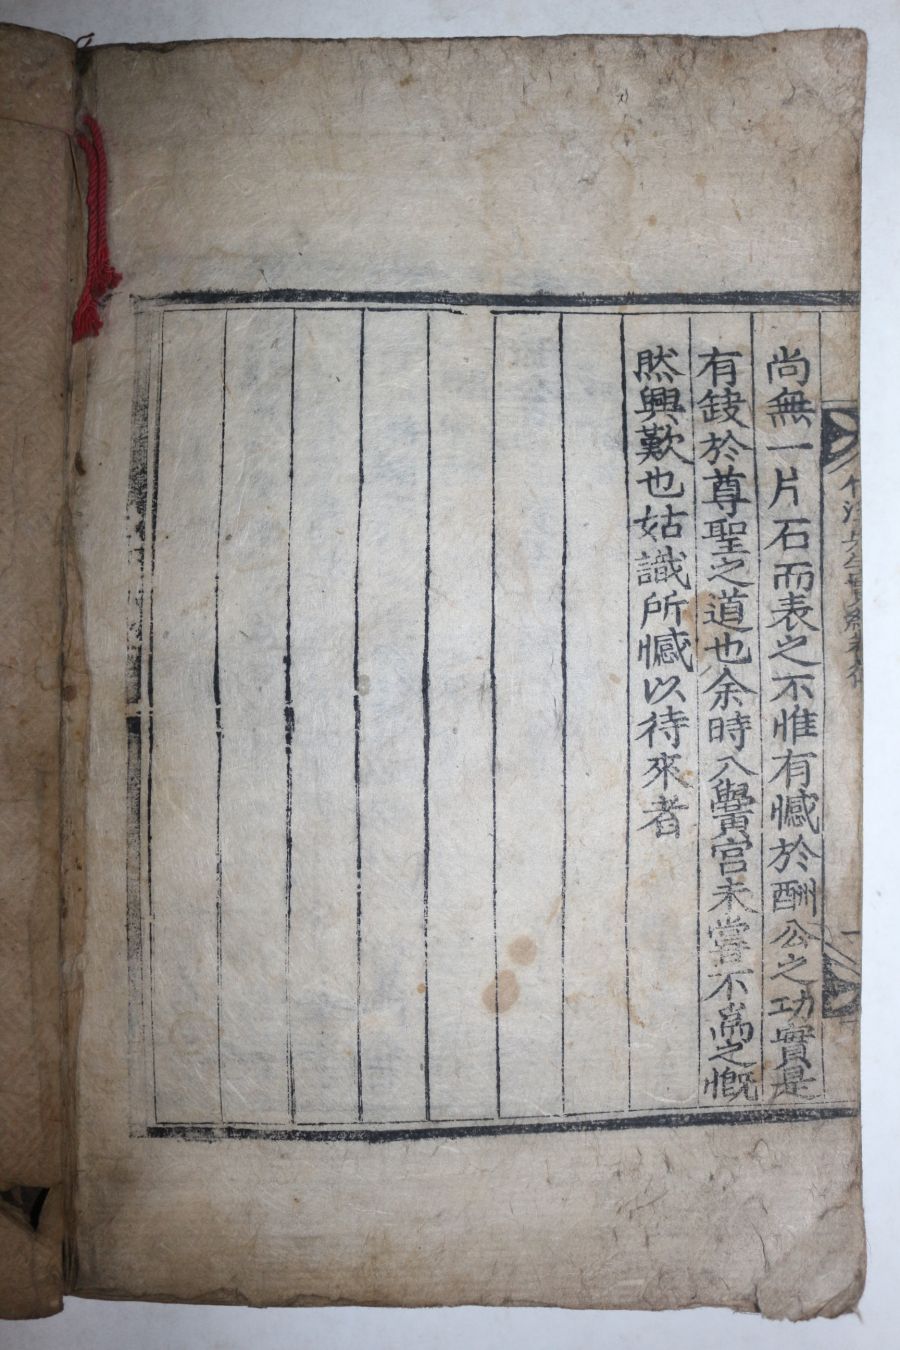 尚無一片石而表之不惟有憾於酬公之功實是
有䤋於尊聖之道也余時入黌宮未嘗不爲之慨
然興歎也姑識所憾以待來者
一